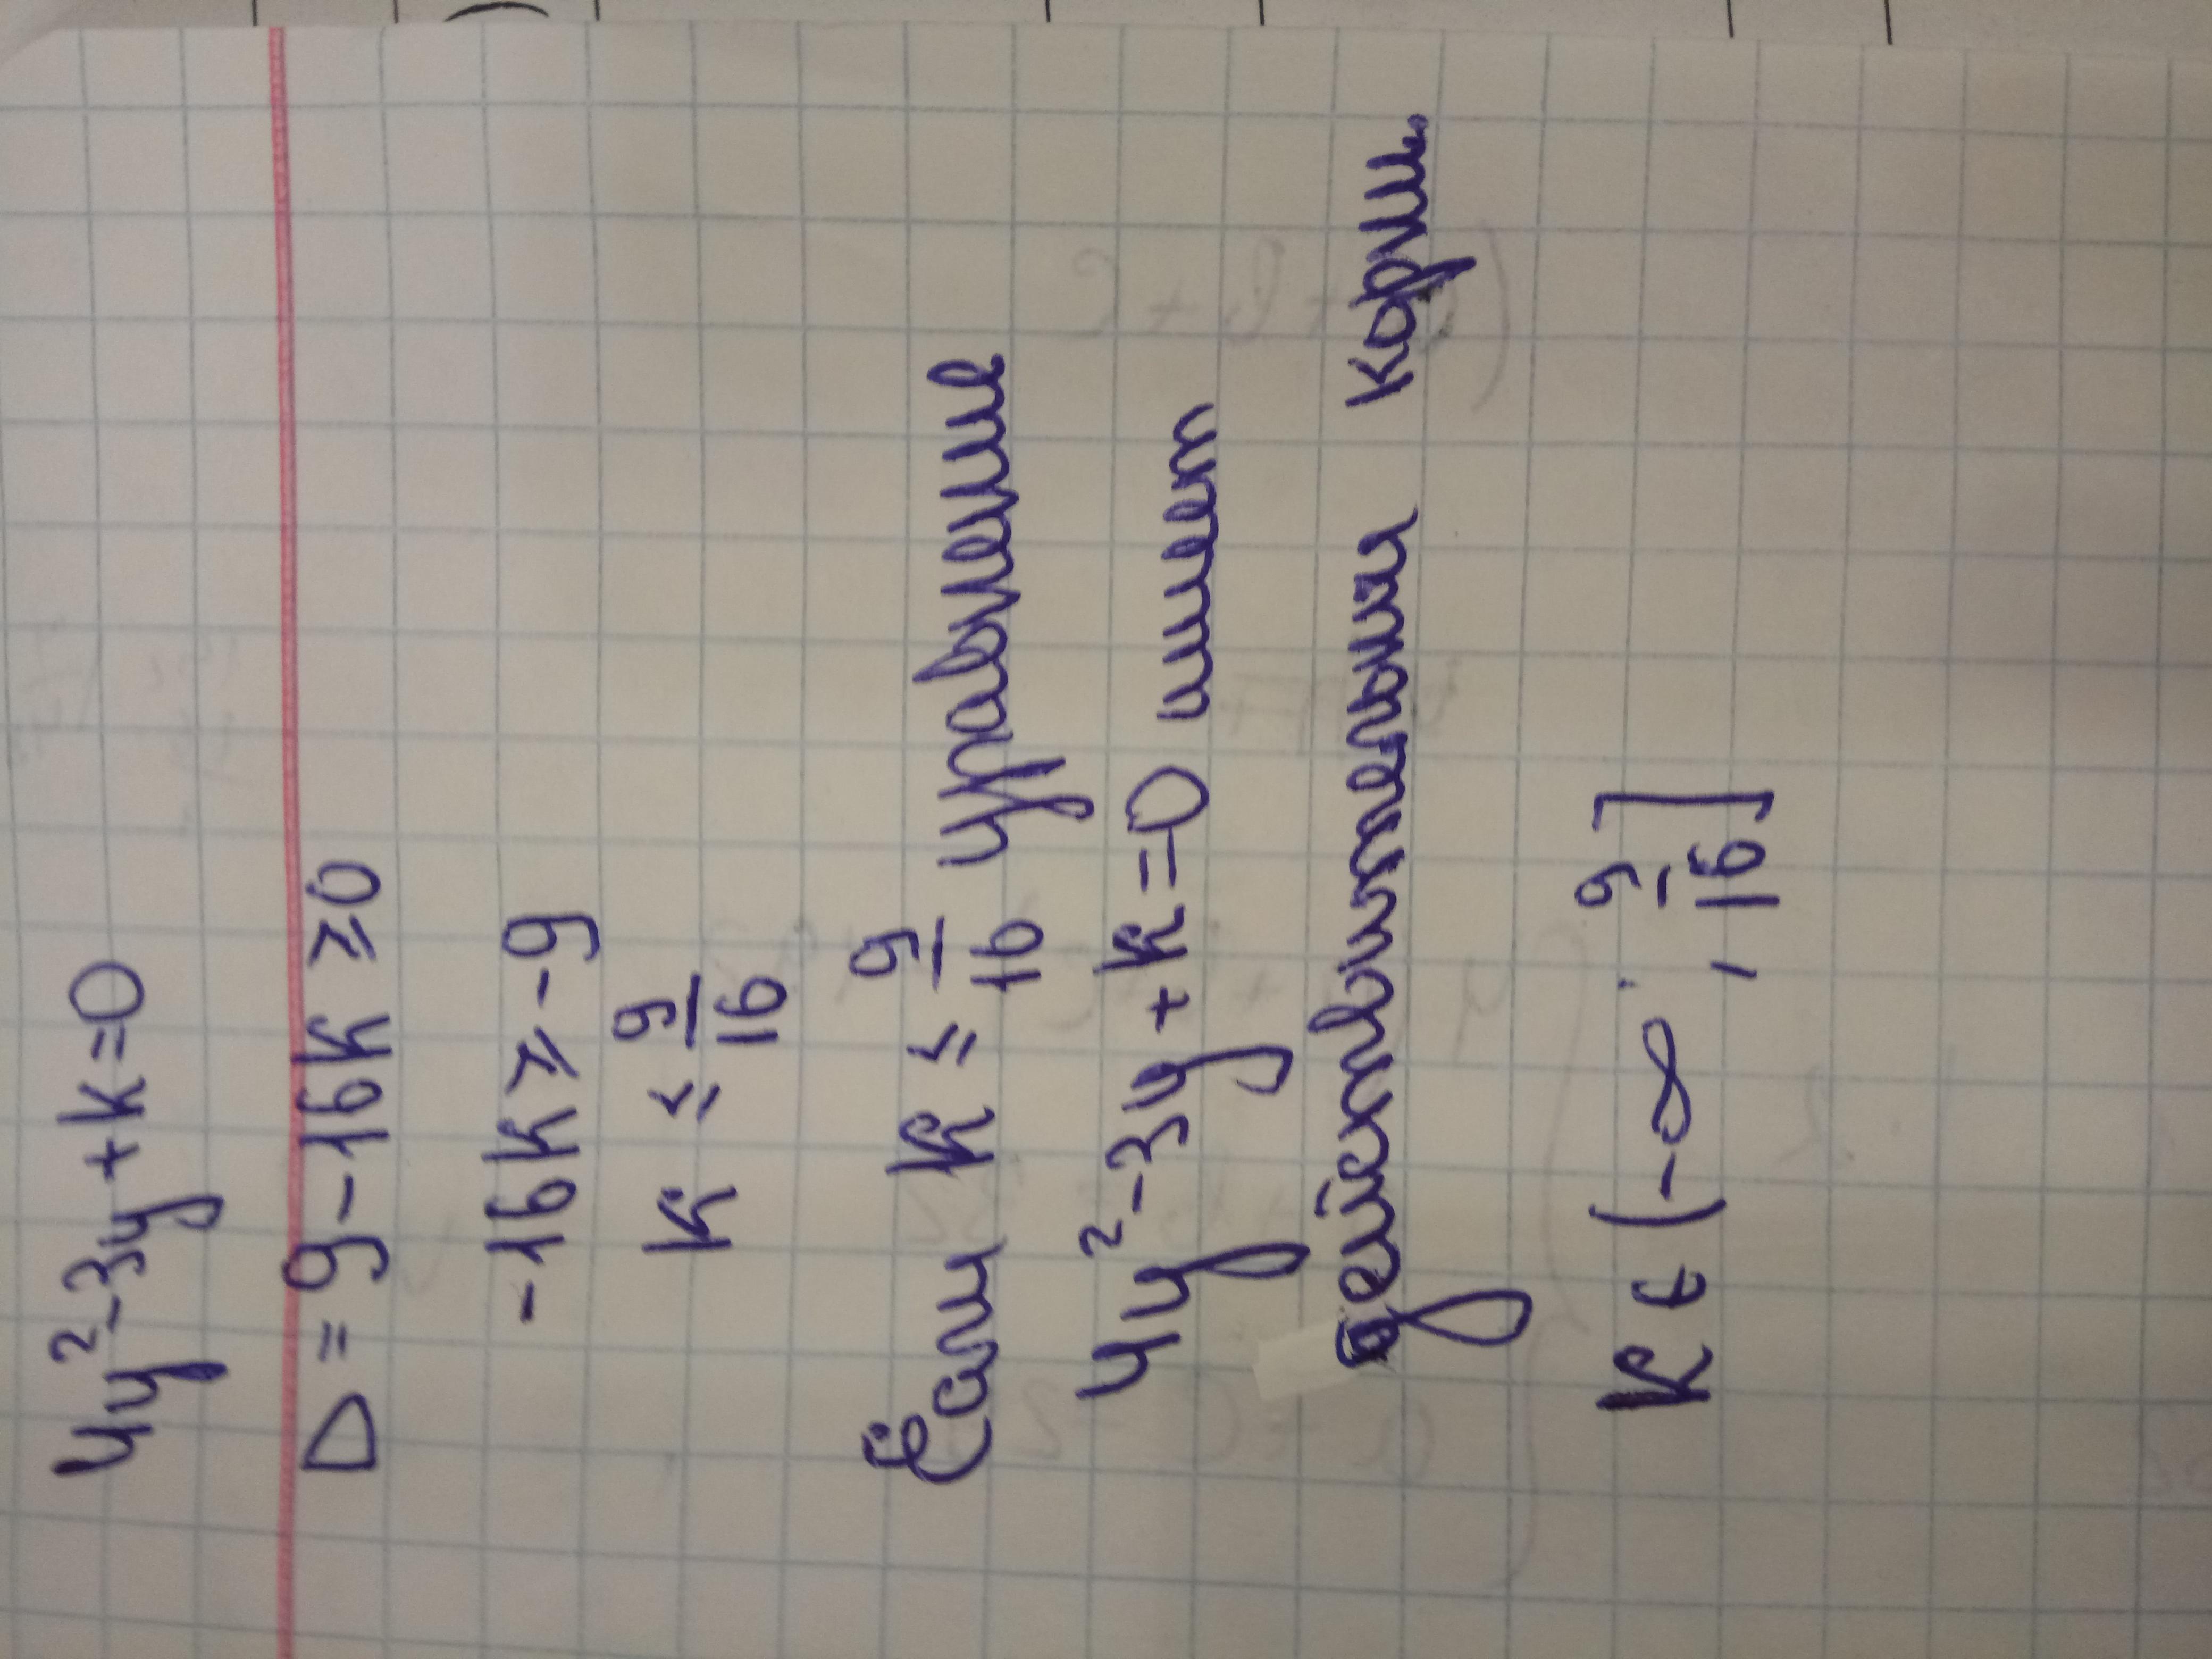 4y²-3y+k=0
D=9-16k≥0
-16k≥-9
k≤9/16
Если k≤9/16 уравнение
4y²-3y+k=0 имеет
действительные корни.
k∈(-∞, 9/16]